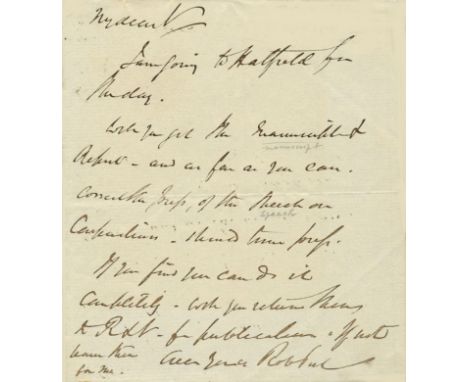 My dear V
I am going to Hatfield for
the day.
Will you get the Manuscript &
manuscript
Report - and as far as you can
correct the press, of the Speech on
speech
- should time press.
If you find you can do it
completely - will you return them
to R&V - for publication - If not
leave them Ever yours
for me.